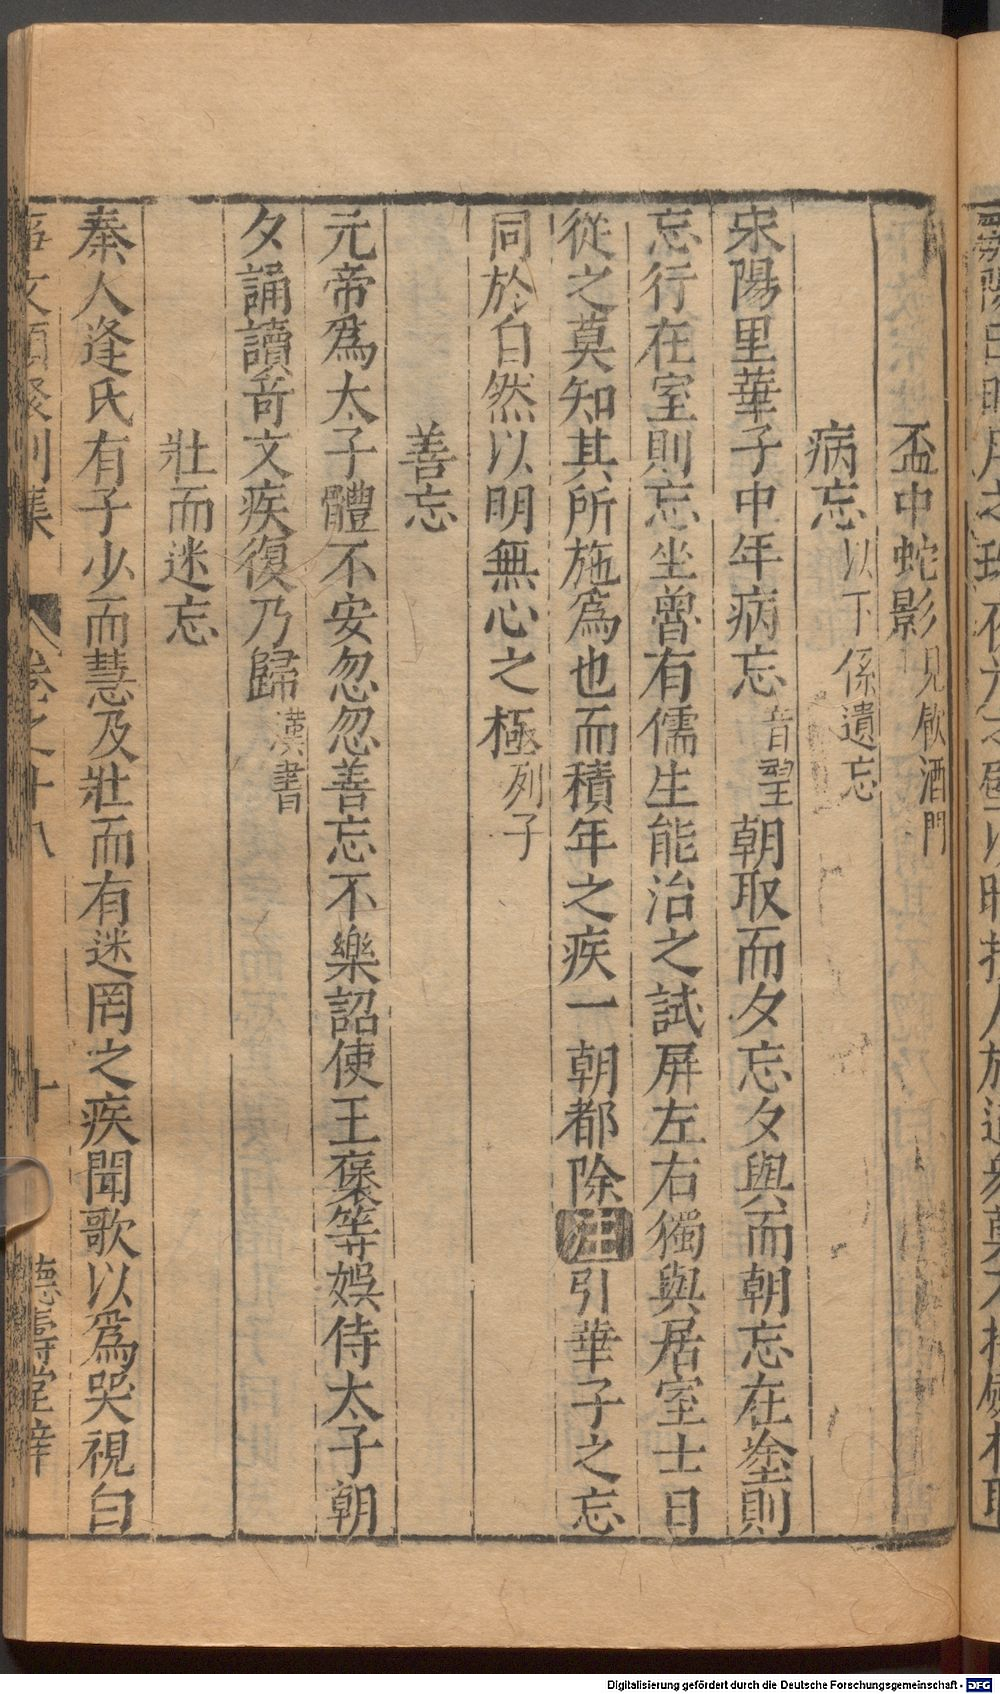 盃中蛇影見飲酒門
病忘以下係遺忘
宋陽里華子中年病忘音望朝取而夕忘夕與而朝忘在塗則
忘行在室則忘坐魯有儒生能治之試屏左右獨與居室士日
從之莫知其所施爲也而積年之疾一朝都除注引華子之忘
同於自然以明無心之極列子
善忘
元帝爲太子體不安忽忽善忘不樂詔使王褒等娛侍太子朝
夕誦讀奇文疾復乃歸漢書
壯而迷忘
秦人逢氏有子少而慧及壯而有迷罔之疾聞歌以爲哭視白
事文類聚別集 卷之十八 十 德壽堂梓
Digitalisierung gefördert durch die Deutsche Forschungsgemeinschaft - DFG